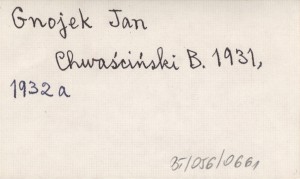 Gnojek Jan
Chwaściński B. 1931,
1932 a
35/056/0661